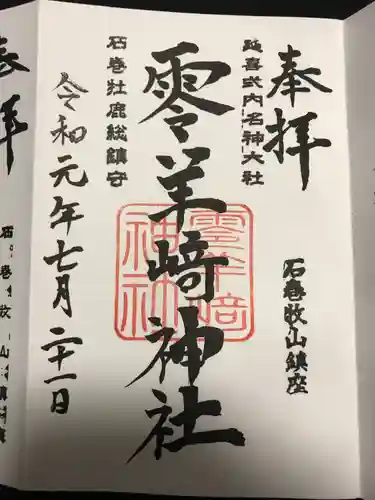 奉拝
延喜式内名神大社
石巻牧山鎮座
零羊崎神社
零羊崎
神社
石巻牡鹿総鎮守
令和元年七月二十一日
拝
石巻牧山